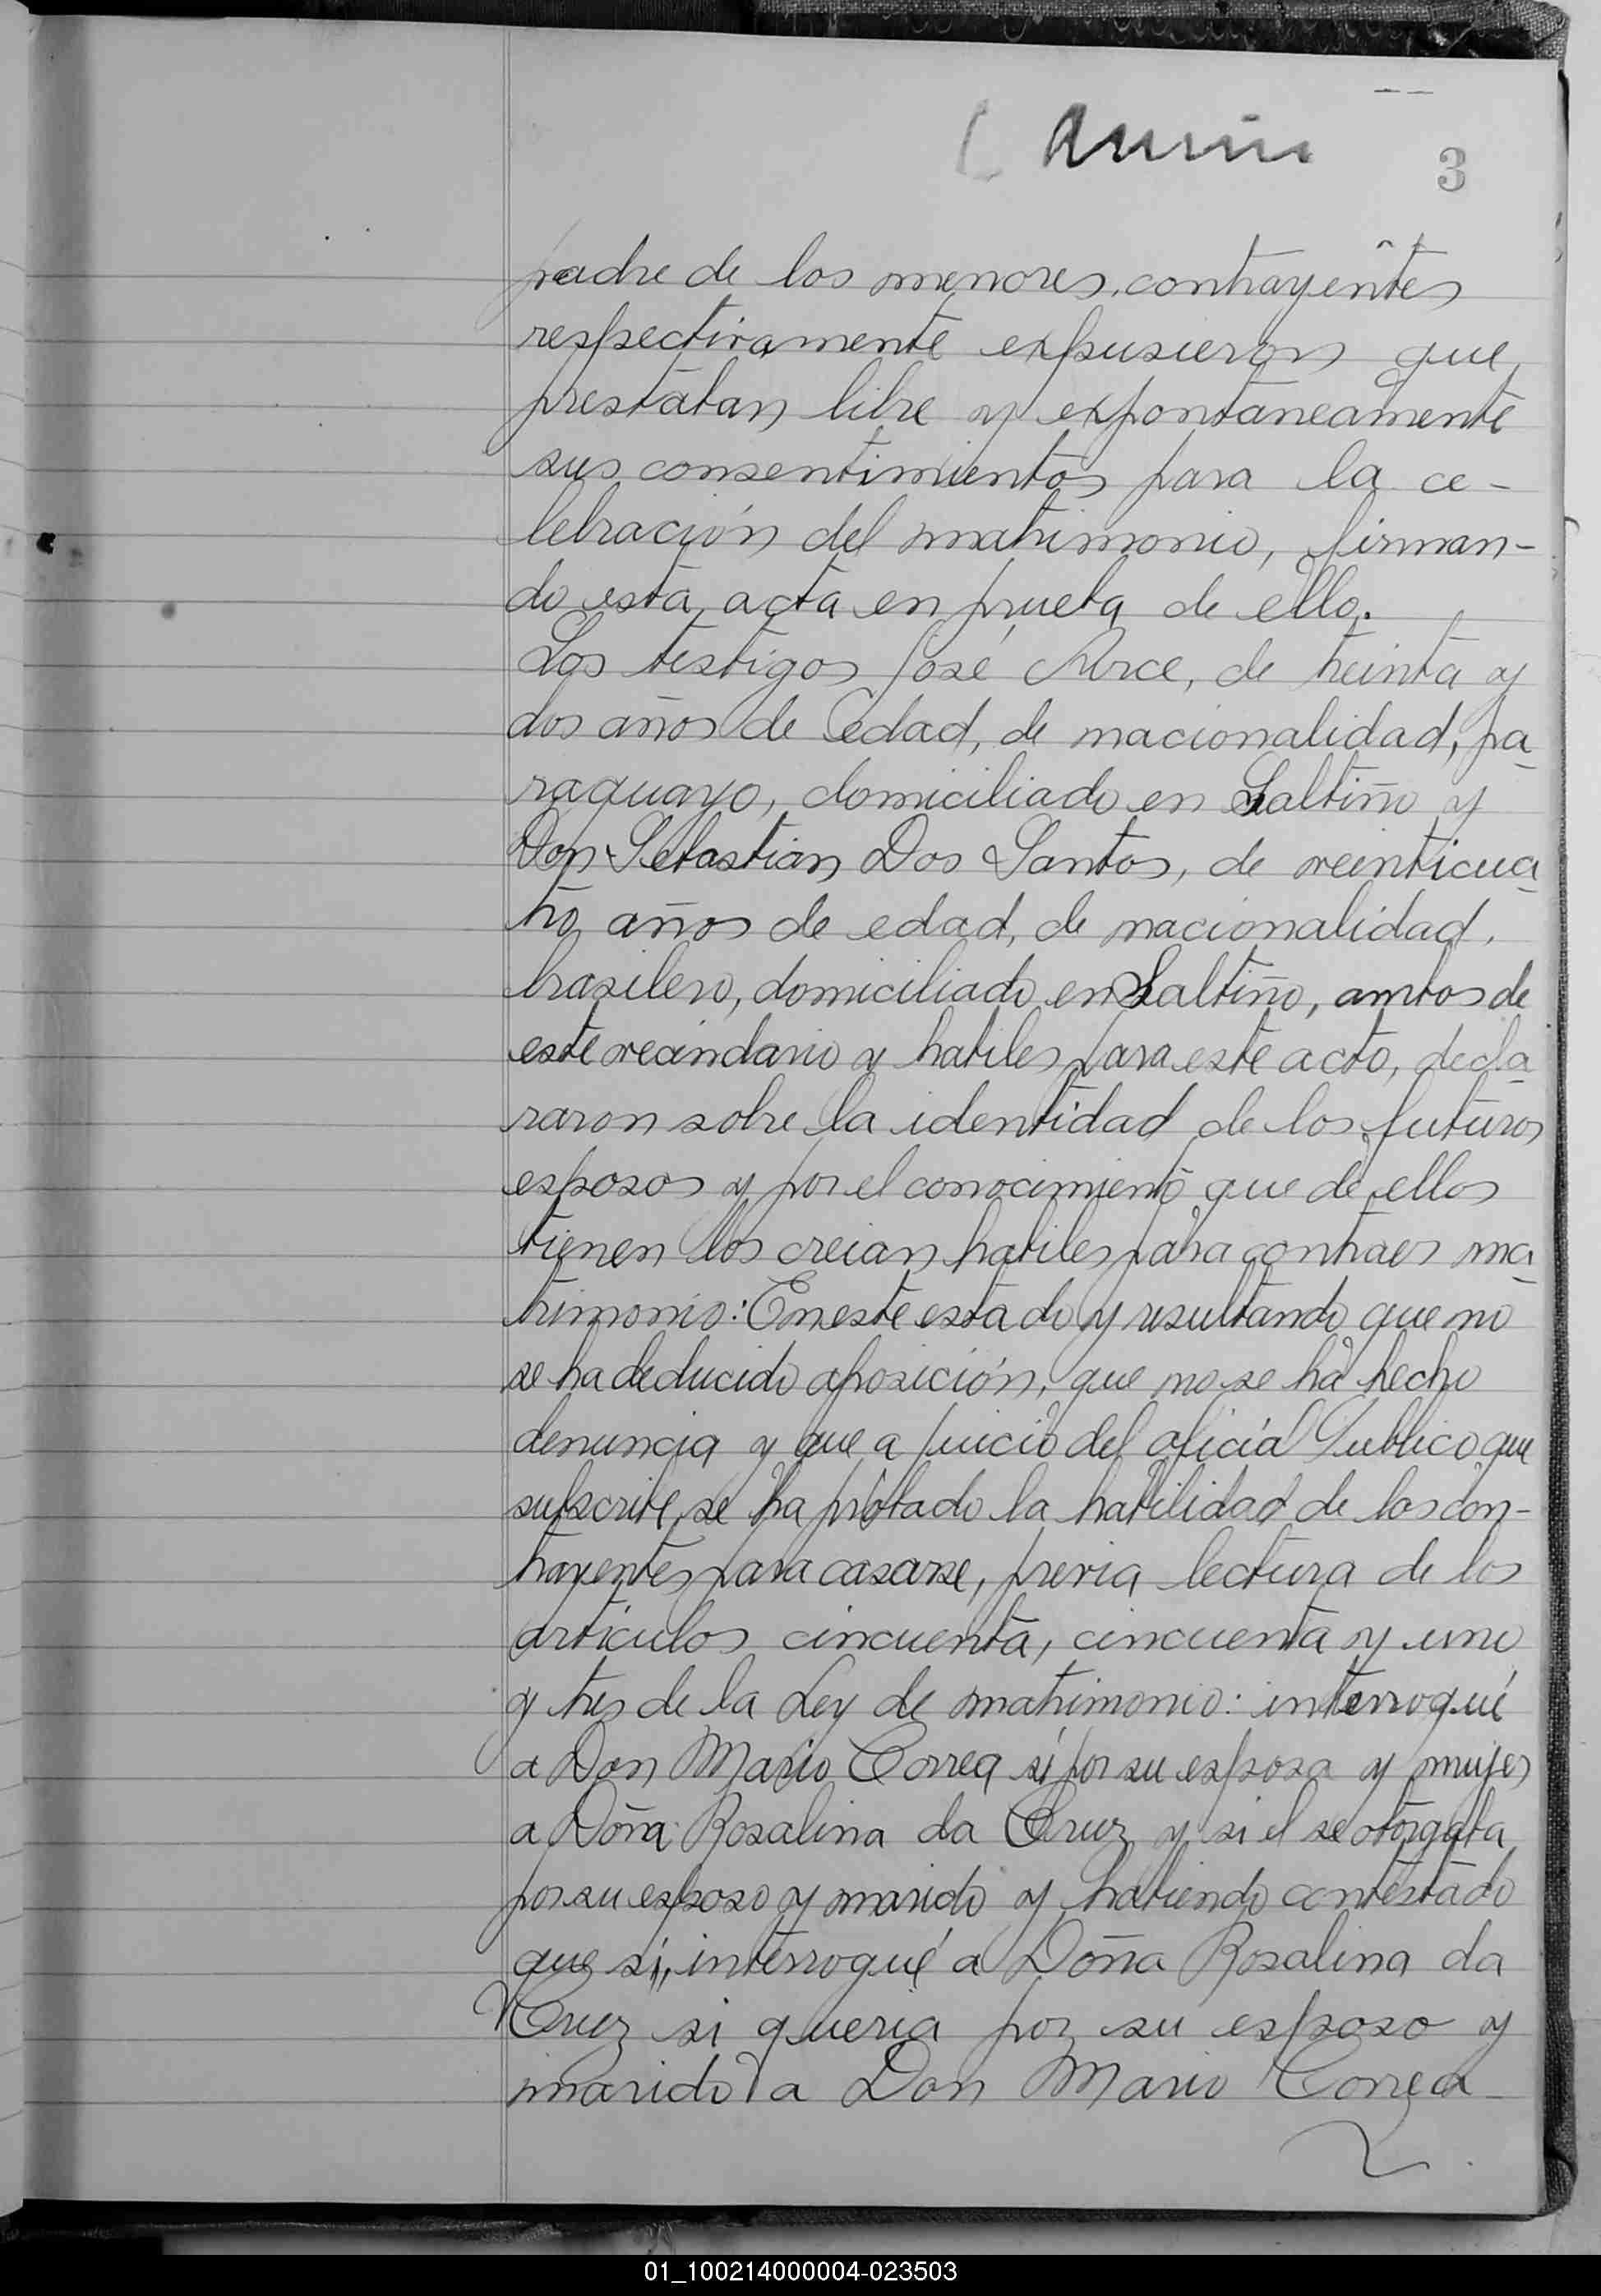 3
padre de los menores, contrayentes
respectivamente expusieron que
prestaban libre y expontaneamente
sus consentimientos para la ce-
lebración del matrimonio, firman-
do esta acta en prueba de ello.
Los testigos José Arce, de treinta y
dos años de edad, de nacionalidad, pa-
raguayo, domiciliado en Saltiño y
Don Sebastian Dos Santos, de veinticua-
tro años de edad, de nacionalidad,
brasilero, domiciliado en Saltiño, ambos de
este vecindario y habiles para este acto, decla-
raron sobre la identidad de los futuros
esposos y por el conocimiento que de ellos
tienen los creian habiles para contraer ma-
trimonio: En este estado y resultando que no
se ha deducido oposición, que no se ha hecho
denuncia y que a juicio del oficial Publico que
subscribe, se ha probado la habilidad de los con-
trayentes para casarse, previa lectura de los
artículos cincuenta, cincuenta y uno
y tres de la Ley de matrimonio: interrogué
a Don Mario Correa si por su esposa y mujer
a Doña Rosalina da Cruz y si el se otorgaba
por su esposo y marido y habiendo contestado
que si, interrogué a Doña Rosalina da
Cruz si queria por su esposo y
marido a Don Mario Correa
01_100214000004-023503